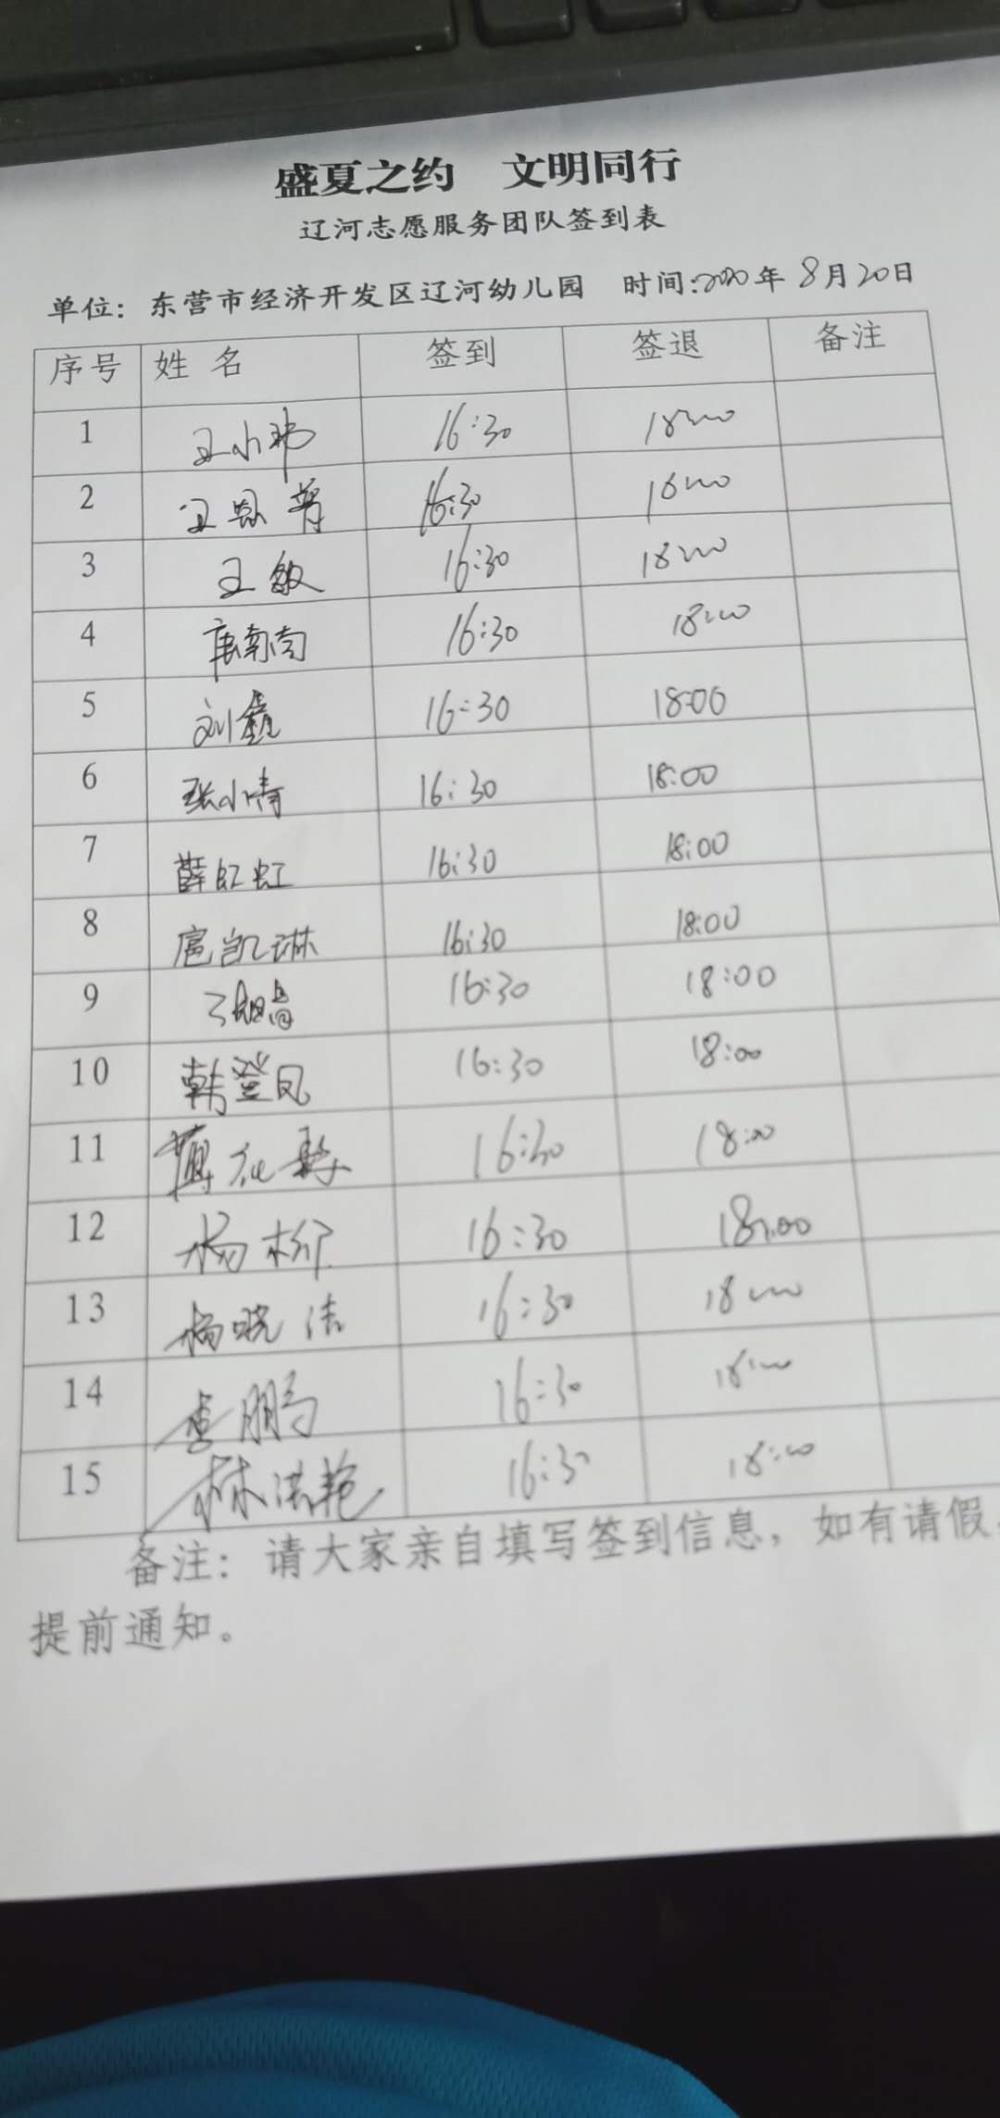 盛夏之约 文明同行
辽河志愿服务团队签到表
单位：东营市经济开发区辽河幼儿园 时间:2020年8月20日
序号 姓名 签到 签退 备注
1 王小玮 16:30 18:00
2 王 16:30 18:00
3 王敏 16:30 18:00
4 唐南南 16:30 18:00
5 刘鑫 16:30 18:00
6 张小倩 16:30 18:00
7 薛红虹 16:30 18:00
8 扈凯琳 16:30 18:00
9 16:30 18:00
10 韩登凤 16:30 18:00
11 16:30 18:00
12 杨柳 16:30 18:00
13 杨晓洁 16:30 18:00
14 李鹏 16:30 18:00
15 林洪艳 16:30 18:00
备注：请大家亲自填写签到信息，如有请假，
提前通知。